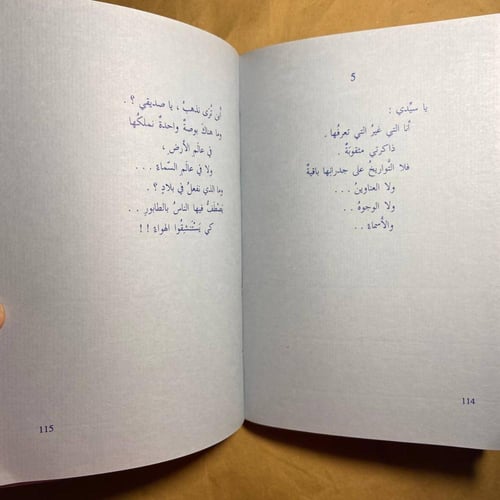 5
يا سيِّدي :
أنا التي غيرُ التي تعرفُها .
ذاكرتي مثقوبةٌ .
فلا التَّواريخُ على جدرانِها باقيةٌ
ولا العناوينُ . . .
ولا الوجوهُ . .
والأسماءُ . .
114
أنى تُرى نذهبُ ، يا صديقي ؟ .
وما هناكَ بوصةٌ واحدةٌ نملكُها
في عالَمِ الأرضِ ،
ولا في عالَمِ السَّماءْ . . .
وما الذي نفعلُ في بلادٍ ؟ .
يَصْطَفُّ فيها الناسُ بالطابورِ . .
كي يَسْتَنشِقُوا الهواءْ ! !
115